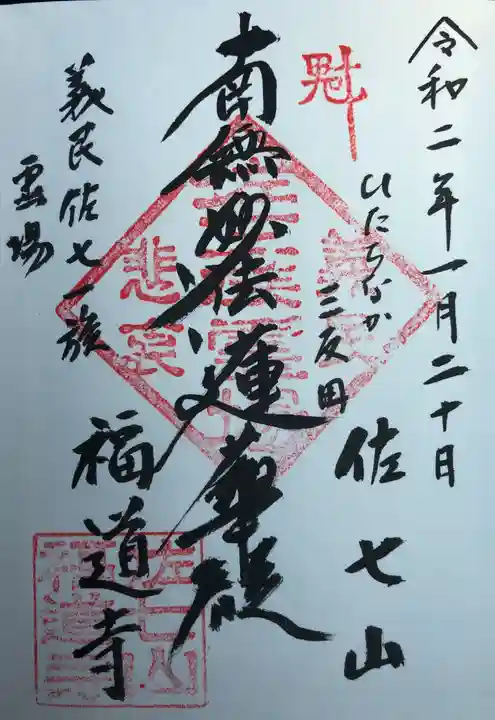 令和二年一月二十日
魁
ひたちなか
三反田
佐七山
南無妙法蓮華殿
義民佐七一族
霊場
福道寺
佐七山